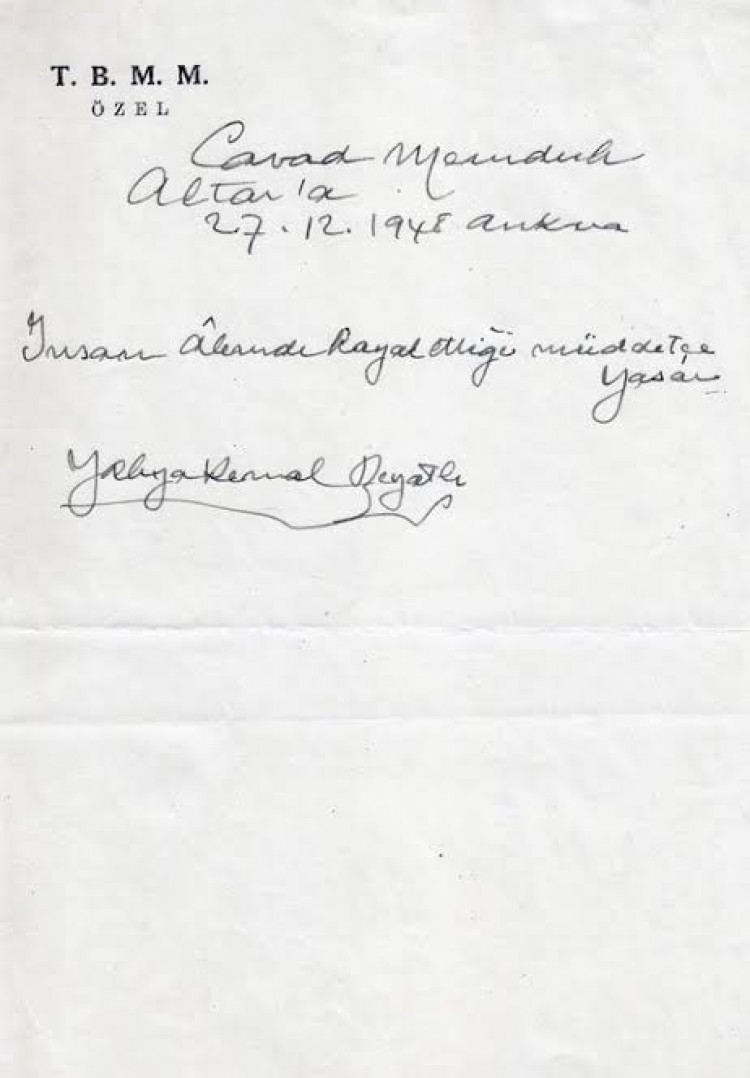 T. B. M. M.
ÖZEL
Cavad Memduh
Altar'a
27.12.1948 Ankara
İnsan Âlemde hayal ettiği müddetçe
Yaşar
Yahya Kemal Beyatlı